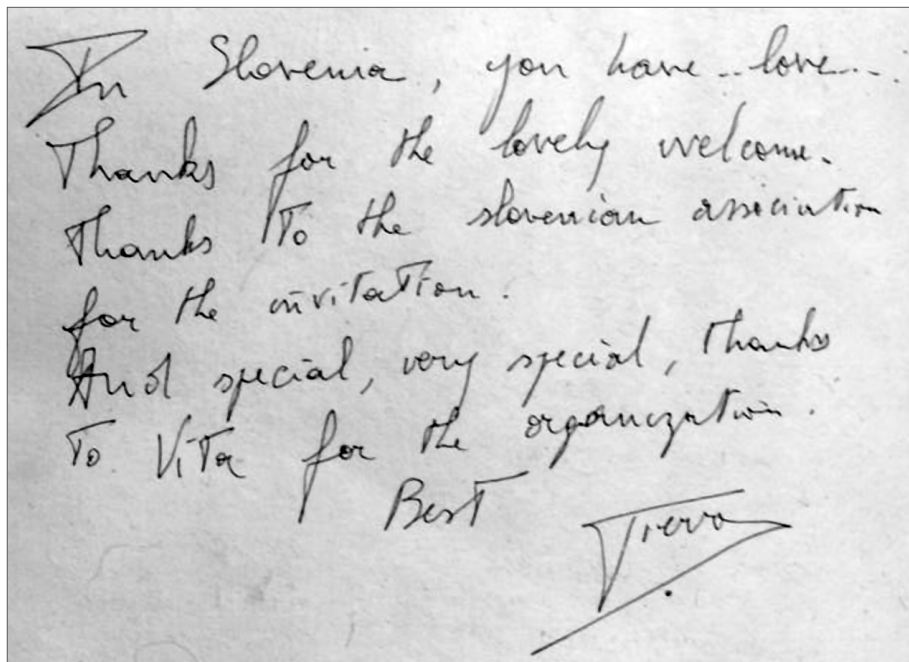 In Slovenia, you have.. love...
Thanks for the lovely welcome.
Thanks To the slovenian association
for the invitation.
And special, very special, thanks
To ViTa for the organization.
BesT